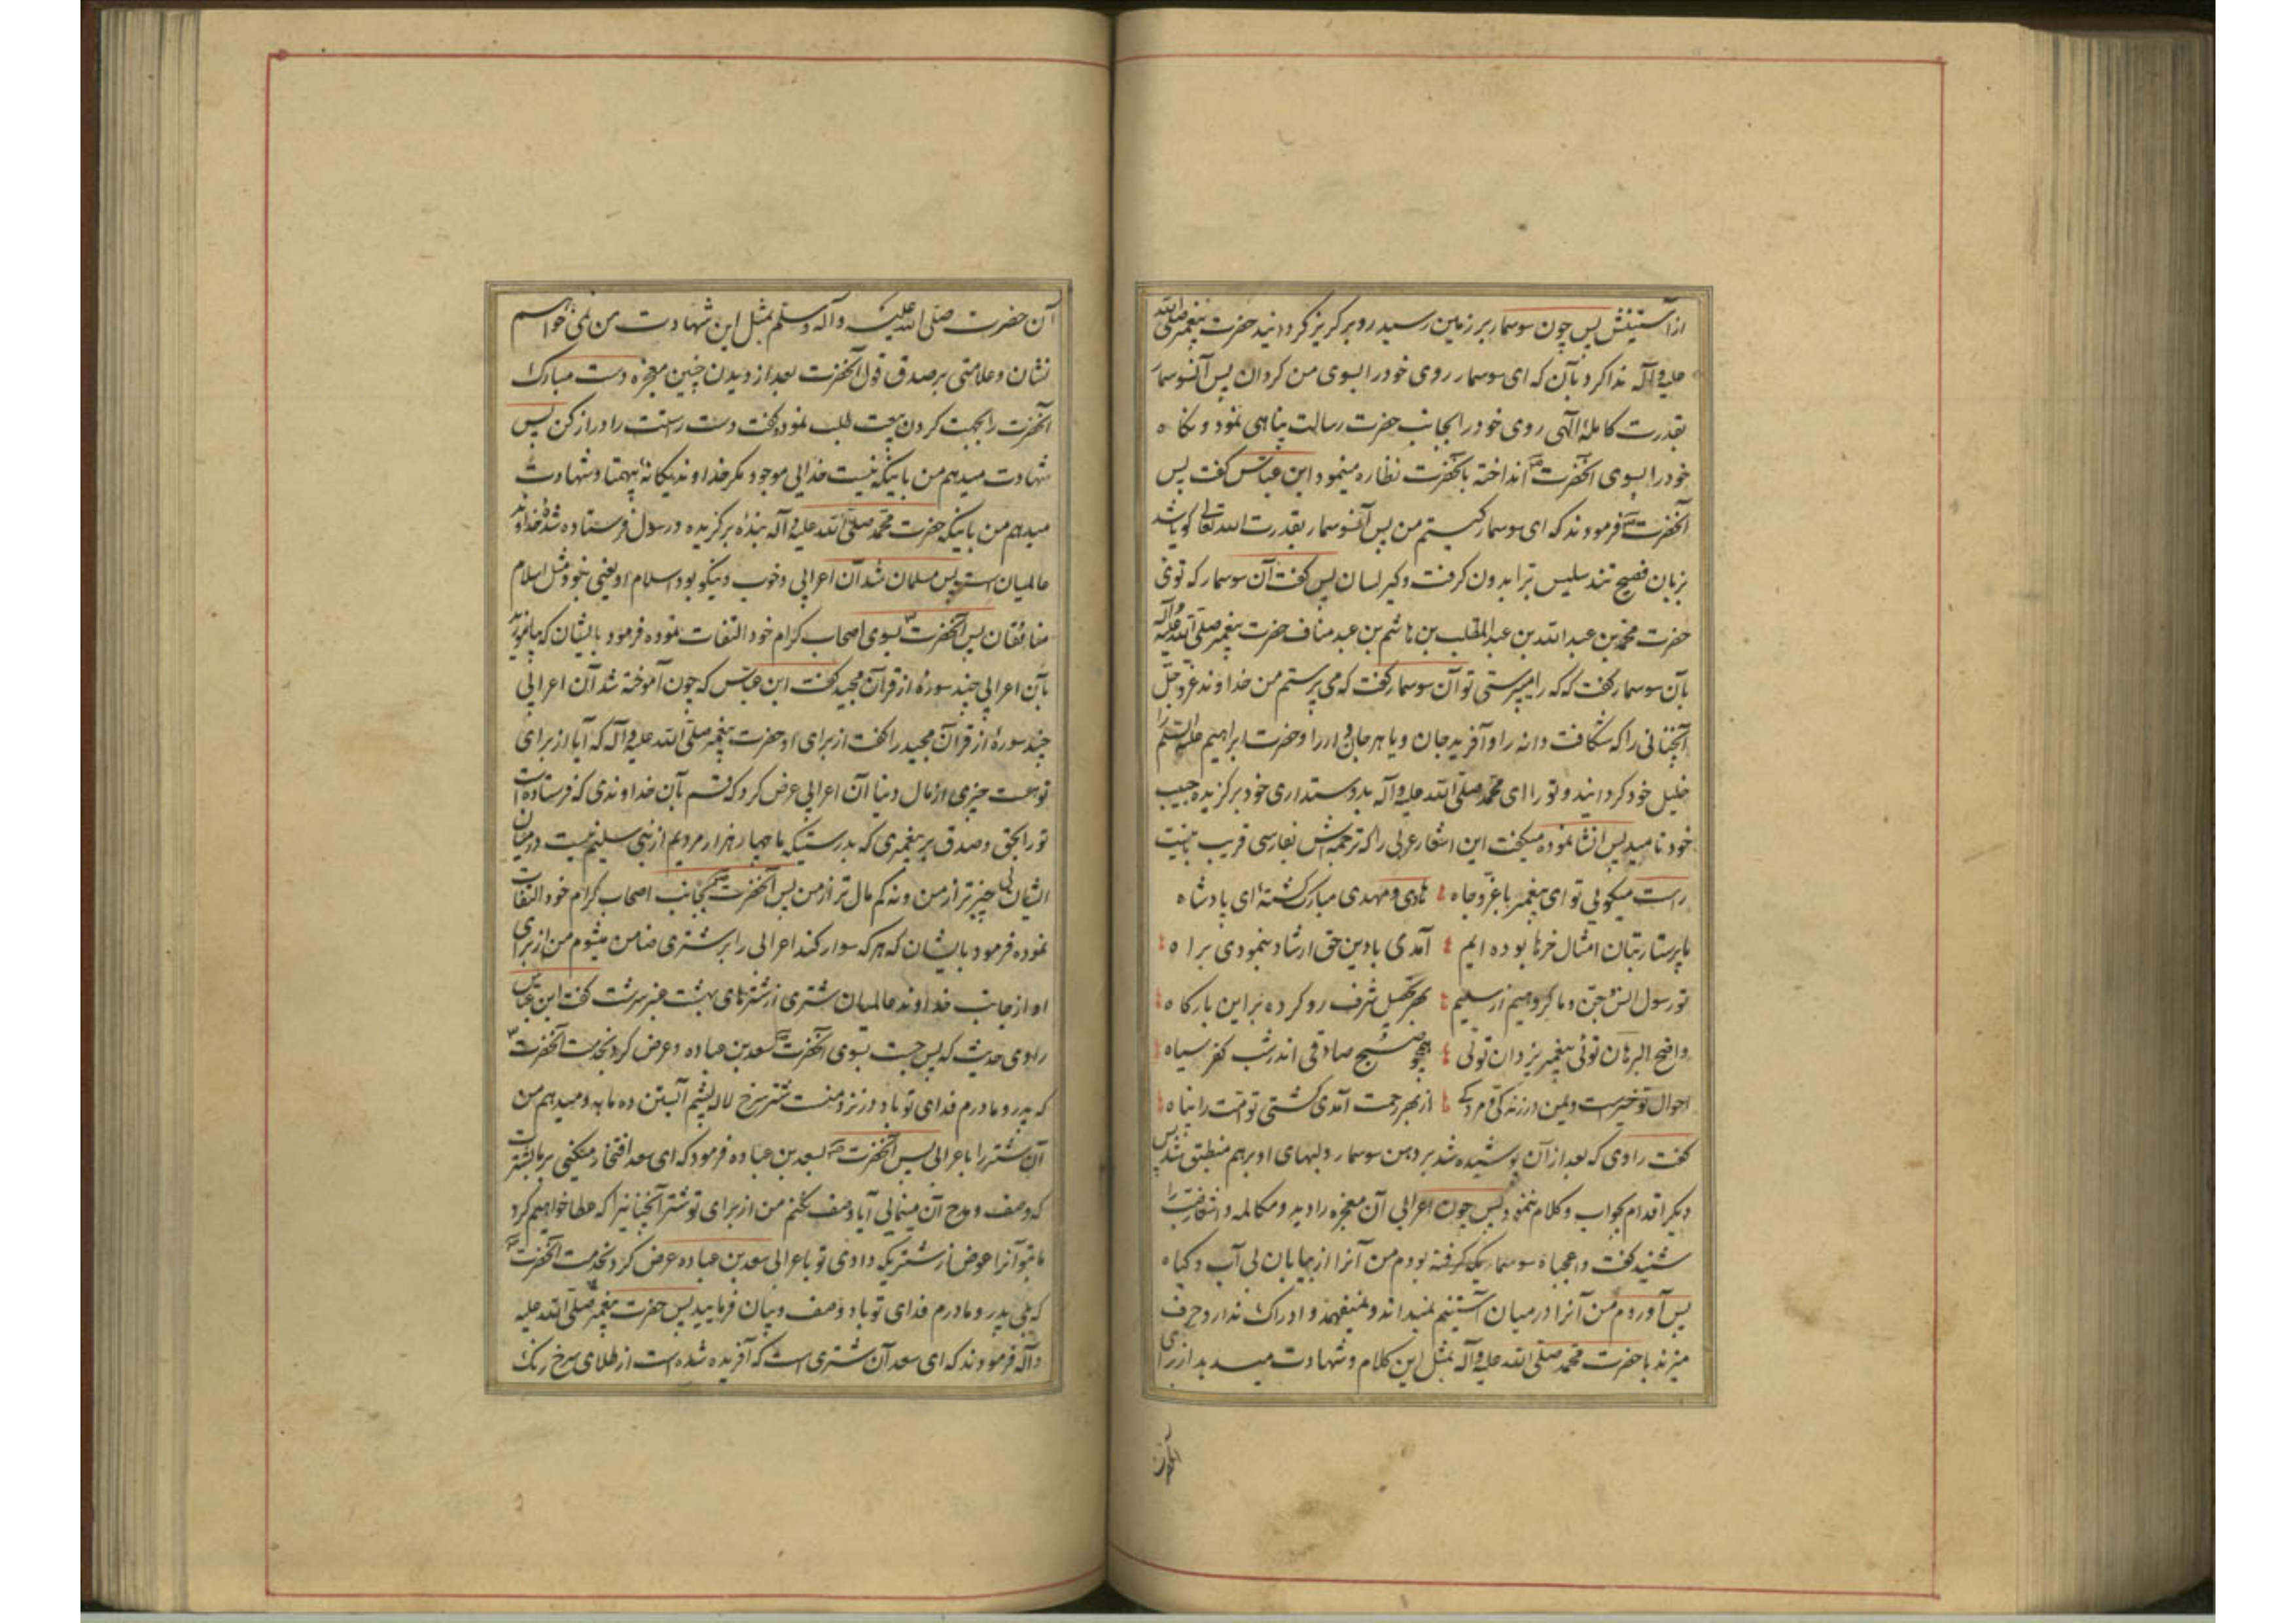 از آستینش پس چون سوسمار بر زمین رسید رو بر گریز گردانید حضرت پیغمبر صلی الله
علیه و آله ندا کرد بآن که ای سوسمار روی خود را بسوی من گردان پس آنسوسمار
بقدرت کامله الهی روی خود را بجانب حضرت رسالت پناهی نمود و نگاه
خود را بسوی آنحضرت ص انداخته بآنحضرت نظاره مینمود ابن عباس گفت پس
آنحضرت ص فرمودند که ای سوسمار کیستم من پس آنسوسمار بقدرت الله تعالی گویا شد
بزبان فصیح تند سلیس تر ا بدون گرفت و گیر لسان پس گفت آن سوسمار که توئی
حضرت محمد بن عبد الله بن عبد المطلب بن هاشم بن عبد مناف حضرت پیغمبر صلی الله علیه و آله
بآن سوسمار گفت که که را میپرستی تو آن سوسمار گفت که می پرستم من خداوند عز و جل
آنچنانی را که شکافت دانه را و آفرید جان و یا هر جان داررا و حضرت ابراهیم علیه السلم را
خلیل خود گردانید و تو را ای محمد صلی الله علیه و آله بدوستداری خود برگزیده حبیب
خود نامید پس انشا نموده میگفت این اشعار عربی را که ترجمه اش بفارسی قریب بانیت
راست میگویی تو ای پیغمبر با عز و جاه هادی و مهدی مبارک گشته ای پادشاه
ما پرستار بتان امثال خرها بوده ایم آمدی با دین حق ارشاد بنمودی براه
تو رسول انس و جن و ما گروهیم از سلیم بهر تحصیل شرف رو کرده بر این بارگاه
واضح البرهان توئی پیغمبر یزدان توئی همچو صبح صادقی اندر شب کفر سیاه
احوال تو خیرست و یمن در زندگی و مردگی از بهر رحمت آمدی گشتی تو امت را پناه
گفت راوی که بعد از آن پوشیده شد بر دهن سوسمار و لبهای او بر هم منطبق شد پس
دیگر اقدام بجواب و کلام ننمود پس چون اعرابی آن معجزه را دید و مکالمه و اشعار ضب را
شنید گفت واعجباه سوسماریکه گرفته بودم من آنرا از بیابان بی آب و گیاه
پس آوردم من آنرا در میان آستینم نمیداند و نمیفهمد و ادراک ندارد حرف
میزند با حضرت محمد صلی الله علیه و آله بمثل این کلام و شهادت میدهد از برای
آن حضرت صلی الله علیه و آله و سلم بمثل این شهادت من نمی خواهم
نشان و علامتی بر صدق قول آنحضرت بعد از دیدن چنین معجزه دست مبارک
آنحضرت را بجهت کردن بیعت طلب نمود و گفت دست راستت را دراز کن پس
شهادت میدهم من باینکه نیست خدایی موجود مگر خداوند یگانه بیهمتا و شهادت
میدهم من باینکه حضرت محمد صلی الله علیه و آله بنده برگزیده و رسول فرستاده شده خداوند
عالمیان است پس مسلمان شد آن اعرابی و خوب و نیکو بود اسلام او یعنی نبود مثل اسلام
منافقان پس آنحضرت ص بسوی اصحاب کرام خود التفات نموده فرمود بایشان که بیاموزید
بآن اعرابی چند سوره از قرآن مجید گفت ابن عباس که چون آموخته شد آن اعرابی
چند سوره از قرآن مجید را گفت از برای او حضرت پیغمبر صلی الله علیه و آله که آیا از برای
تو هست چیزی از مال دنیا آن اعرابی عرض کرد که قسم بآن خداوندی که فرستاده است
تو را بحق و صدق به پیغمبری که بدرستیکه ما چهار هزار مردیم از بنی سلیم نیست در میان
ایشان بی چیزتر از من و نه کم مال تر از من پس آنحضرت ص بجانب اصحاب کرام خود التفات
نموده فرمود بایشان که هر که سوار کند اعرابی را بر شتری ضامن میشوم من از برای
او از جانب خداوند عالمیان شتری از شترهای بهشت عنبر سرشت گفت ابن عباس
راوی حدیث که پس جست بسوی آنحضرت ص سعد بن عباده و عرض کرد بخدمت آنحضرت ص
که پدر و مادرم فدای تو باد در نزد منست شتر سرخ لاله پشم آبستن ده ماهه و میدهم من
آن شتر را باعرابی پس آنحضرت ص بسعد بن عباده فرمود که ای سعد افتخار میکنی بر ما بشترت
که وصف و مدح آن مینمایی آیا وصف نکنم من از برای تو شتر آنچنانیرا که عطا خواهیم کرد
ما بتو آنرا عوض از شتریکه دادی تو باعرابی سعد بن عباده عرض کرد بخدمت آنحضرت ص
که بلی پدر و مادرم فدای تو باد وصف و بیان فرمایید پس حضرت پیغمبر صلی الله علیه
و آله فرمودند که ای سعد آن شتری است که آفریده شده است از طلای سرخ رنگ